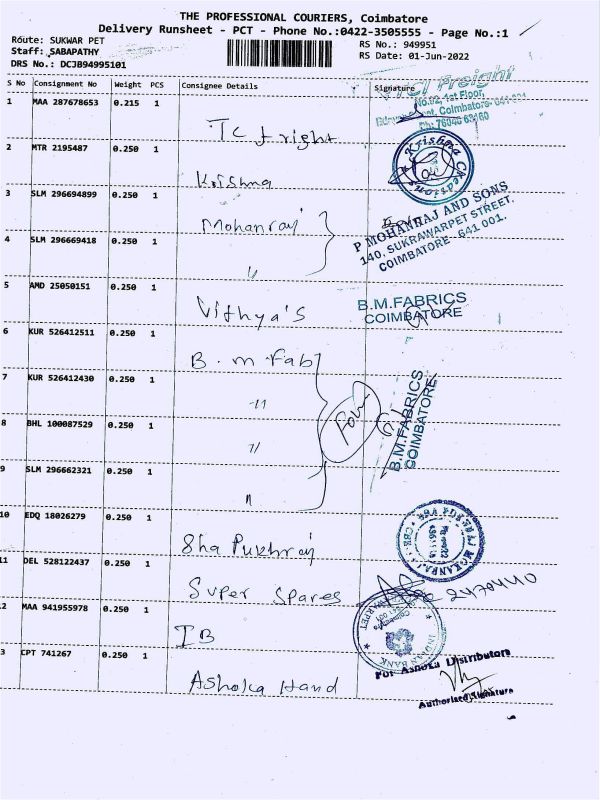 THE PROFESSIONAL COURIERS, Coimbatore
Delivery Runsheet - PCT - Phone No.:0422-3505555 - Page No.:1
Route: SUKWAR PET
RS No.: 949951
Staff: SABAPATHY
RS Date: 01-Jun-2022
DRS No.: DCJB94995101
S No Consignment No Weight PCS Consignee Details Signature
1 MAA 287678653 0.215 1
Freight
No.92, 1st Floor,
Coimbatore-641 001
Ph: 76046 63160
2 MTR 2195487 0.250 1
Krishna
Krishna Creations
3 SLM 296694899 0.250 1
Mohanraj
P MOHANRAJ AND SONS
140, SUKRAWARPET STREET,
COIMBATORE - 641 001.
4 SLM 296669418 0.250 1
5 AMD 25050151 0.250 1
Vithya's
B.M.FABRICS
COIMBATORE
6 KUR 526412511 0.250 1
B.m Fab
7 KUR 526412430 0.250 1
Four
B.M.FABRICS
COIMBATORE
8 BHL 100087529 0.250 1
9 SLM 296662321 0.250 1
10 EDQ 18026279 0.250 1
Sha Pukhraj
11 DEL 528122437 0.250 1
Super Spares
12 MAA 941955978 0.250 1
IB
INDIAN BANK
13 CPT 741267 0.250 1
Ashoka Hand
For Ashoka Distributors
Authorised Signature